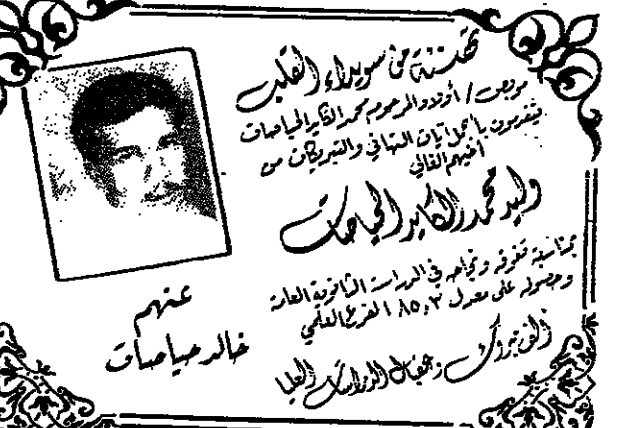 تهنئة من سويداء القلب
موبص / أولاد المرحوم محمد الكايد الحياصات
يتقدمون بأجمل آيات التهاني والتبريكات من
أخيهم الغالي
وليد محمد الكايد الحياصات
بمناسبة تفوقه ونجاحه في الدراسة الثانوية العامة
وحصوله على معدل ٨٥,٢ الفرع العلمي
ألف مبروك وعقبال الدراسات العليا
عنهم
خالد حياصات